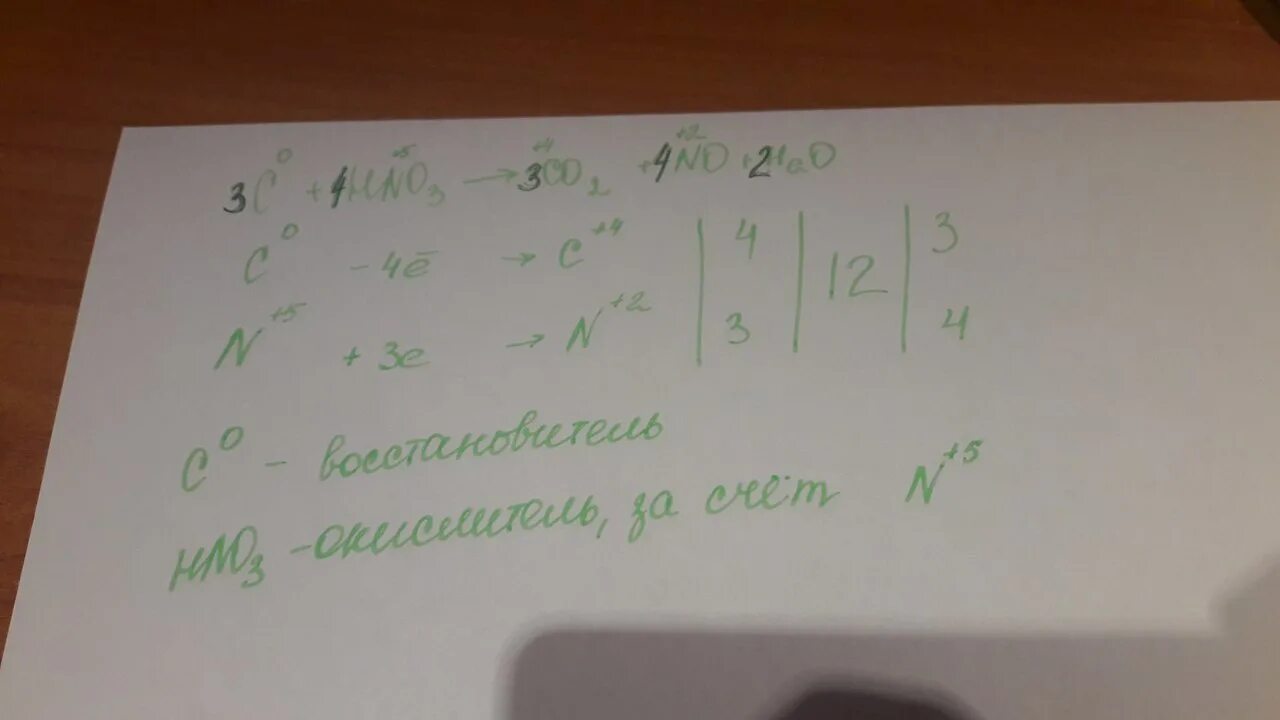 3C⁰ + 4HN⁺⁵O₃ → 3C⁺⁴O₂ + 4N⁺²O + 2H₂O
C⁰ - 4ē → C⁺⁴ | 4 | 12 | 3
N⁺⁵ + 3e → N⁺² | 3 | | 4
C⁰ - восстановитель
HNO₃ - окислитель, за счёт N⁺⁵